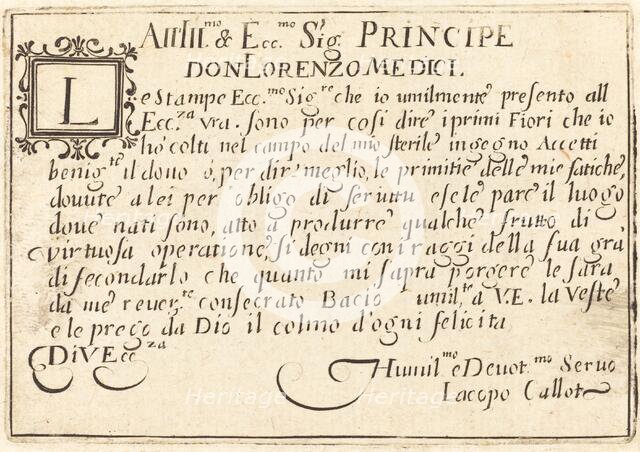 All'Ill.mo & Ecc.mo Sig. PRINCIPE
DON LORENZO MEDICI.
Le Stampe Ecc.mo Sig.re che io umilmente presento all
Ecc.za vra. sono per cosi dire i primi Fiori che io
ho colti nel campo del mio sterile ingegno Accetti
benig.te il dono o, per dir meglio, le primitie delle mie fatiche,
dovute a lei per obligo di seruitu e se le pare il luogo
doue nati sono, atto a produrre qualche frutto di
virtuosa operatione, si degni con i raggi della sua gra.
di fecondarlo che quanto mi sapra porgere le sara
da me reuer.te consecrato Bacio umil.te a V.E. la veste
e le prego da Dio il colmo d'ogni felicita
Di V Ecc.za
Humil.mo e Deuot.mo Seruo
Iacopo Callot
Heritage Heritage Heritage